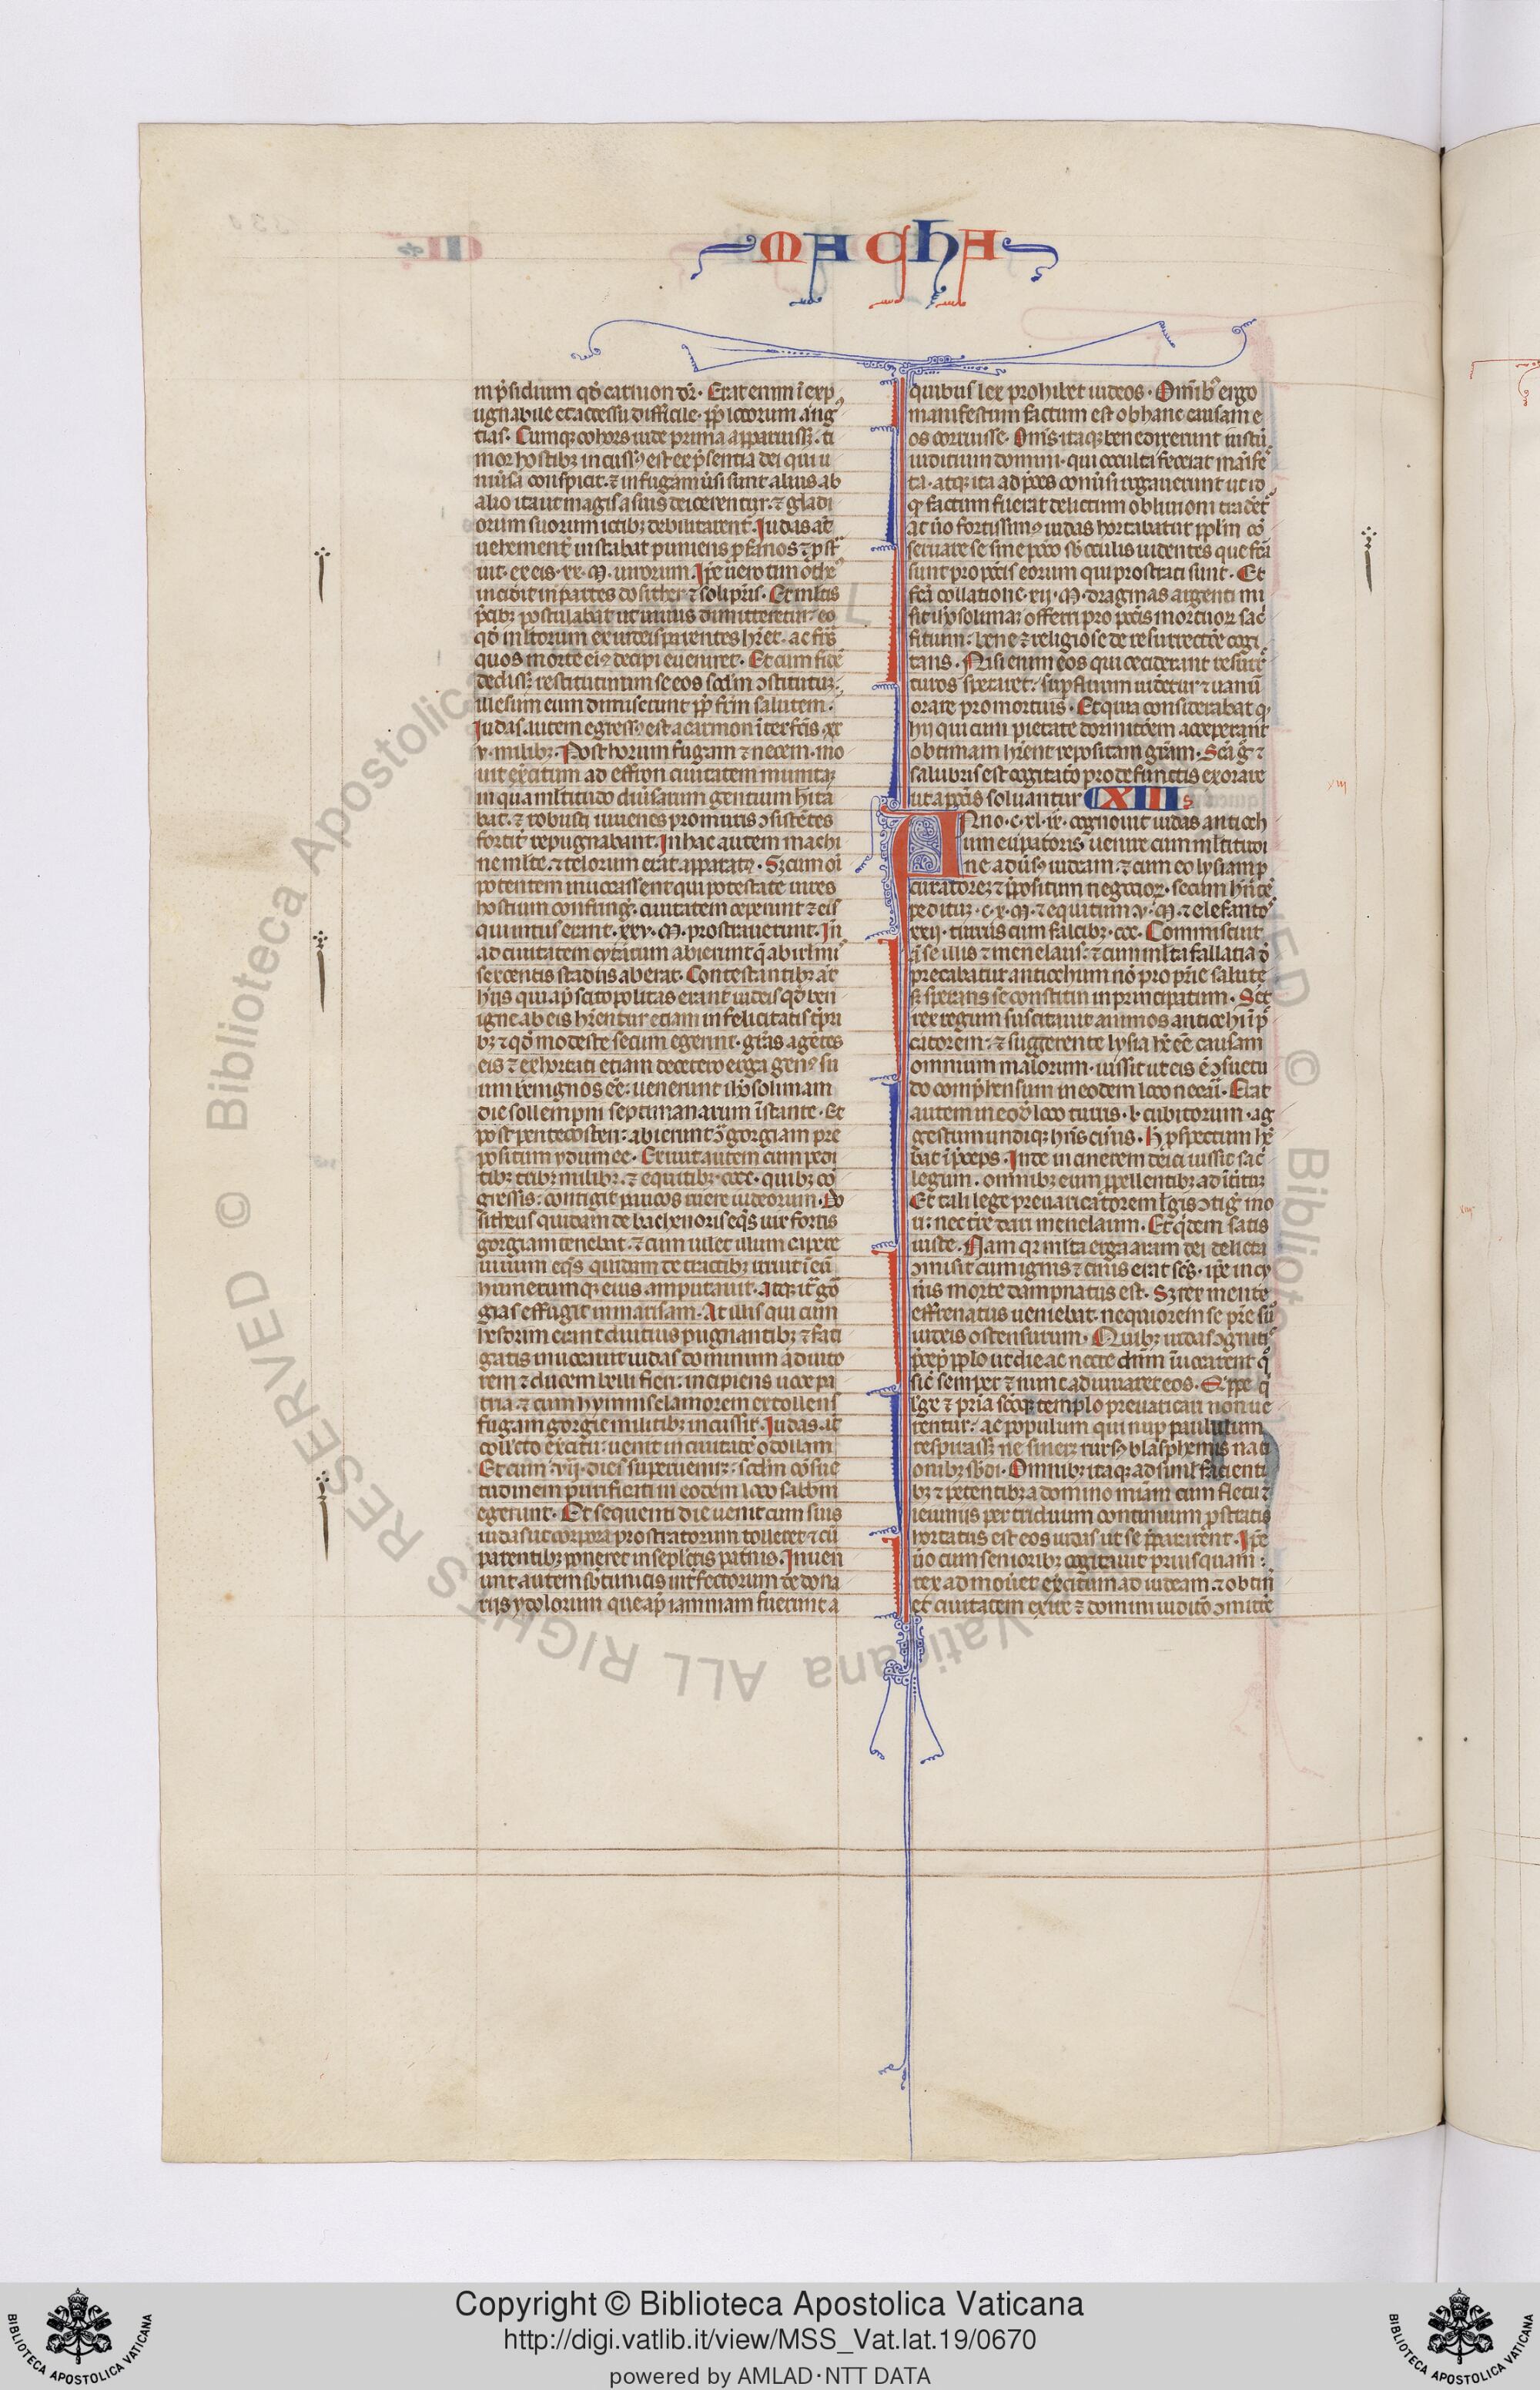 MACHA
in p̾sidium qd̾ carnion dr̄. Erat enim ī exp
ugnabile et accessu difficile. pp̄ locorum ang
tias. Cumq; cohors iude prima apparuiss;. ti
mor hostib; incuss9 est ex p̾sentia dei qui u
niūsa conspicit. ⁊ in fugam ūsi sunt alius ab
alio ita ut magis a suis deicerentur. ⁊ gladi
orum suorum ictib; debilitarent̾. Iudas at̄
uehement̾ instabat puniens pfanos ⁊ pst̾
uit. ex eis. xx. M. uirorum. Ip̄e uero timothe9
incidit in partes dosithei ⁊ sosipr̄is. Et ml̄tis
p̾cib; postulabat ut uiuus dimitteretur. eo
qd̾ ml̄torum ex iudeis parentes hr̄et. ac fr̄s
quos morte ei9 decipi eueniret. Et cum fidē
dediss; restituturum se eos scd̄m ɔstitutū.
illesum eum dimiserunt pp̄ fr̄m salutem.
Iudas autem egress9 est a carnion ītfectis xx
v. milib;. Post horum fugam ⁊ necem. mo
uit ex̾citum ad effron ciuitatem munitā
in qua ml̄titudo diūsarum gentium hīta
bat. ⁊ robusti iuuenes pro muris ɔsistētes
fortit̾ repugnabant. In hac autem machi
ne ml̄te. ⁊ telorum erat apparat9. S; cum oī
potentem inuocassent qui potestate uires
hostium confring̾. ciuitatem ceperunt ⁊ eis
qui intus erant. xxv. M. prostrauerunt. In̄
ad ciuitatem cytarum abierunt q̄ ab ihrl̄mis
sexcentis stadiis aberat. Contestantib; at̄
hiis qui ap̄ scitopolitas erant iudeis qd̾ ben
igne ab eis hr̄entur etiam in felicitatis tp̄ri
b; ⁊ qd̾ modeste secum egerint. grās agētes
eis ⁊ exhortati etiam de cetero erga gen9 su
um benignos eē. uenerunt ihrosolimam
die sollempni septimanarum īstante. Et
post pentecosten. abierunt ɔ̄ gorgiam pre
positum ydumee. Exiuit autem cum pedi
tib; trib; milib;. ⁊ equitib;. cccc. quib; cō
gressis. contigit paucos ruere iudeorum. Do
sitheus quidam de bachenoris eqs̄ uir fortis
gorgiam tenebat. ⁊ cum uellet illum capere
uiuum eqs̄ quidam de tracib; irruit ī eū
humerumq; eius amputauit. Atq; ita gor
gias effugit in marisam. At illis qui cum
hesdrim erant diutius pugnantib; ⁊ fati
gatis inuocauit iudas dominum adiuto
rem ⁊ ducem belli fieri. incipiens uoce pa
tria. ⁊ cum hymnis clamorem extollens
fugam gorgie militib; incussit. Iudas at̄
collecto ex̾citu. uenit in ciuitatē odollam
Et cum. vij. dies superueniret. scd̄m cōsue
tudinem purificati in eodem loco sabbm̄
egerunt. Et sequenti die uenit cum suis
iudas ut corpora prostratorum tolleret ⁊ cū
parentib; poneret in sepulcris patriis. Inuen
erunt autem sb̄ tunicis int̾fectorum de dona
riis ydolorum que ap̄ iamniam fuerunt a
quibus lex prohibet iudeos. Omīb9 ergo
manifestum factum est ob hanc causam e
os corruisse. Om̄s itaq; benedixerunt iustū
iuditium domini. qui occulta fecerat manīfe
ta. atq; ita ad p̾ces conūsi rogauerunt ut id
q̾ factum fuerat delictum obliuioni tradēt̾
At ūo fortissim9 iudas hortabatur ppl̄m cō
seruare se sine pcc̄o sb̄ oculis uidentes que fcā
sunt pro pcc̄is eorum qui prostrati sunt. Et
fcā collatione. xij. M. dragmas argenti mi
sit ihrosolimam offerri pro pcc̄is mortuor̄ sac
ficium. bene ⁊ religiose de resurrectiōe cogi
tans. Nisi enim eos qui ceciderant resurre
cturos speraret. supfluum uidetur ⁊ uanū
orare pro mortuis. Et quia considerabat q̾
hii qui cum pietate dormitōem acceperant
obtimam hr̄ent repositam gr̄am. Scā g̾ ⁊
salubris est cogitatō pro defunctis exorare
ut a pcc̄is soluantur CXIII s
Anno. c. xl. ix. cognouit iudas antioch
um eupatoris uenire cum ml̄titudi
ne aduers9 iudeam. ⁊ cum eo lysiam p
curatorem ⁊ p̾positum negocior̄. secum hn̄tē
peditum. c. x. M. ⁊ equitum. v. M. ⁊ elefantos
xxij. currus cum falcib;. ccc. Commiscuit
aū se illis ⁊ menelaus. ⁊ cum ml̄ta fallatia dē
precabatur antiochum nō pro patrie salute
s; sperans se constitui in principatum. Set
rex regum suscitauit animos antiochi ī p̾
catorem. ⁊ suggerente lysia hc̄ ēē causam
omnium malorum. iussit ut eis ē ɔsuetu
do comp̾hensum in eodem loco necari. Erat
autem in eod̄ loco turris. l. cubitorum. ag
gestum undiq; hn̄s cineris. h̾ pspectum hr̄
bat ī p̾ceps. Inde in cinerem deici iussit sac̾
legum. omnib; eum ppellentib; ad īteritū
Et tali lege preuaricatorem legis ɔtig̾ mo
ri. nec t̾re dari menelaum. Et q̾dem satis
iuste. Nam q; ml̄ta erga aram dei delicta
ɔmisit cum ignis ⁊ cinis erat scs̄. ip̄e in ci
neris morte dampnatus est. S; rex mente
effrenatus ueniebat. nequiorem se pr̄e suo
iudeis ostensurum. Quib; iudas ɔgnitis
p̾cep̾ pplo ut die ac nocte dn̄m īuocarent q̾
sic̄ semper ⁊ nunc adiuuaret eos. Quippe q̾
lege ⁊ patria scōq; templo preuaricari non ue
rentur. ac populum qui nup paululum
respirass; ne sineret rurs9 blasphemis nati
onib; sb̄di. Omnib; itaq; ad simil̄ facienti
b; ⁊ petentib; a domino miām cum fletu ⁊
ieiuniis per triduum continuum pstratis
hortatus est eos iudas ut se p̾pararent. Ip̄e
ūo cum seniorib; cogitauit priusquam
rex admouet ex̾citum ad iudeam ⁊ obtin̾
et ciuitatem exire ⁊ domini iuditō ɔmittre
Copyright © Biblioteca Apostolica Vaticana
http://digi.vatlib.it/view/MSS_Vat.lat.19/0670
powered by AMLAD·NTT DATA
BIBLIOTECA APOSTOLICA VATICANA
BIBLIOTECA APOSTOLICA VATICANA
Biblioteca Apostolica Vaticana ALL RIGHTS RESERVED ©